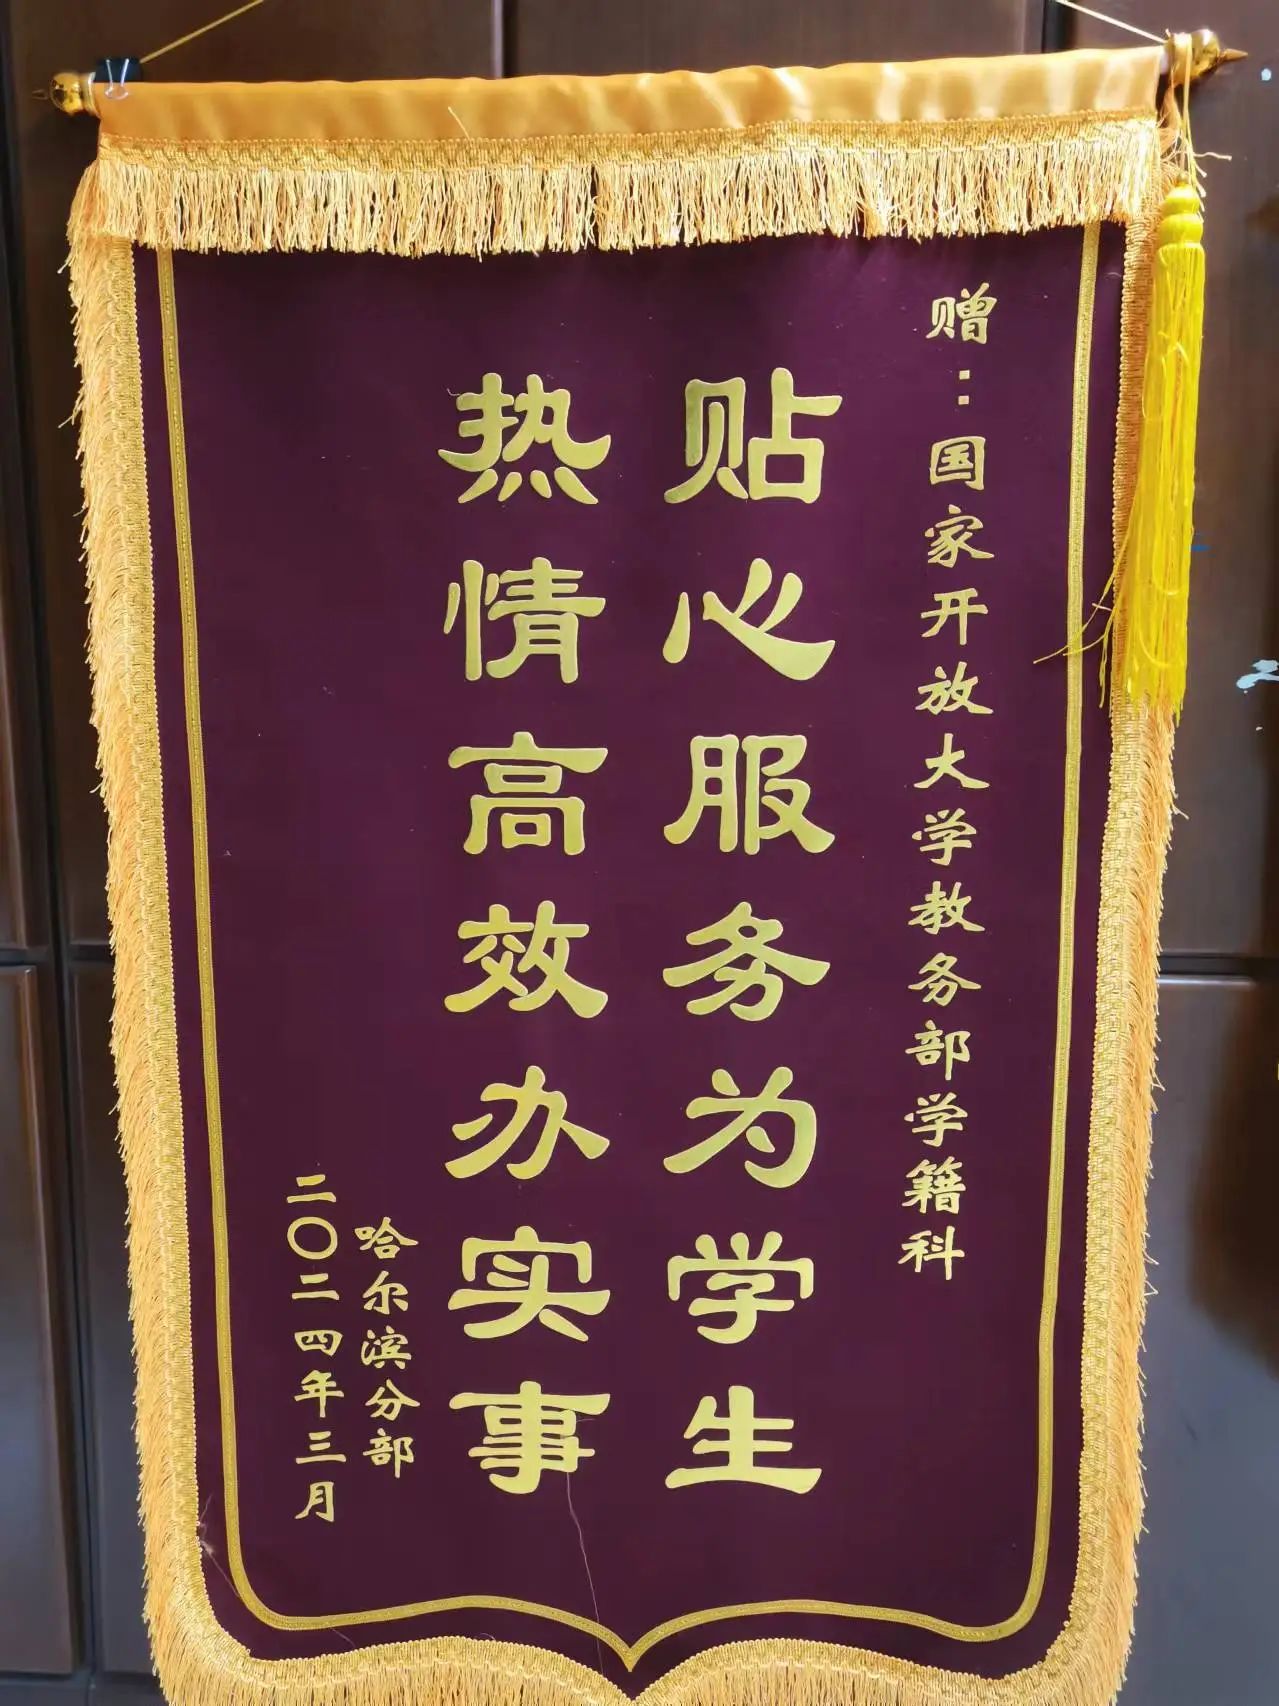 赠：国家开放大学教务部学籍科
贴心服务为学生
热情高效办实事
哈尔滨分部
二〇二四年三月